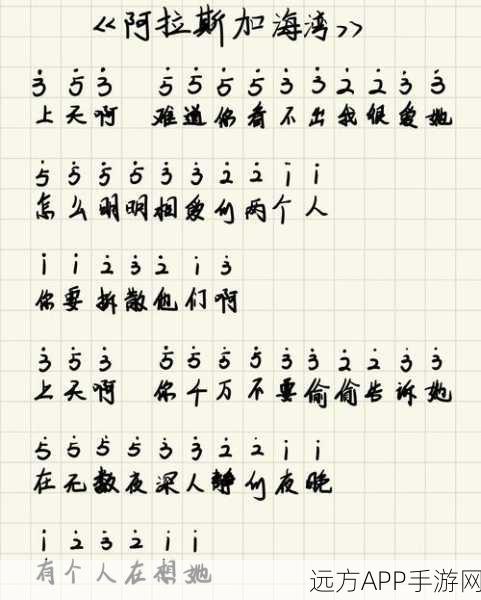 《阿拉斯加海湾》
3̇ 5̇ 3̇ 5̇ 5̇ 5̇ 5̇ 3̇ 3̇ 2̇ 2̇ 3̇ 3̇
上天啊 难道你看不出我很爱她
5̇ 5̇ 5̇ 5̇ 3̇ 3̇ 2̇ 2̇ 1̇ 1̇
怎么明明相爱的两个人
1̇ 1̇ 2̇ 3̇ 2̇ 1̇ 3̇
你要拆散他们啊
3̇ 5̇ 3̇ 5̇ 5̇ 5̇ 5̇ 3̇ 3̇ 2̇ 2̇ 3̇ 3̇
上天啊 你千万不要偷偷告诉她
5̇ 5̇ 5̇ 5̇ 3̇ 3̇ 2̇ 2̇ 1̇ 1̇
在无数夜深人静的夜晚
1̇ 2̇ 3̇ 2̇ 1̇ 1̇
有个人在想她
远方APP手游网